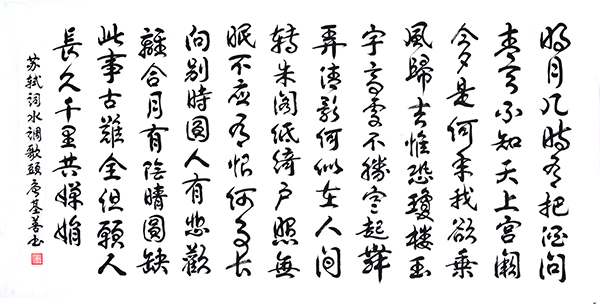 明月几時有把酒問
青天不知天上宮闕
今夕是何年我欲乘
風歸去惟恐瓊樓玉
宇高處不勝寒起舞
弄清影何似在人间
轉朱閣低綺户照無
眠不應有恨何事长
向别時圓人有悲歡
離合月有陰晴圓缺
此事古難全但願人
長久千里共嬋娟
苏轼词水調歌頭唐基善书